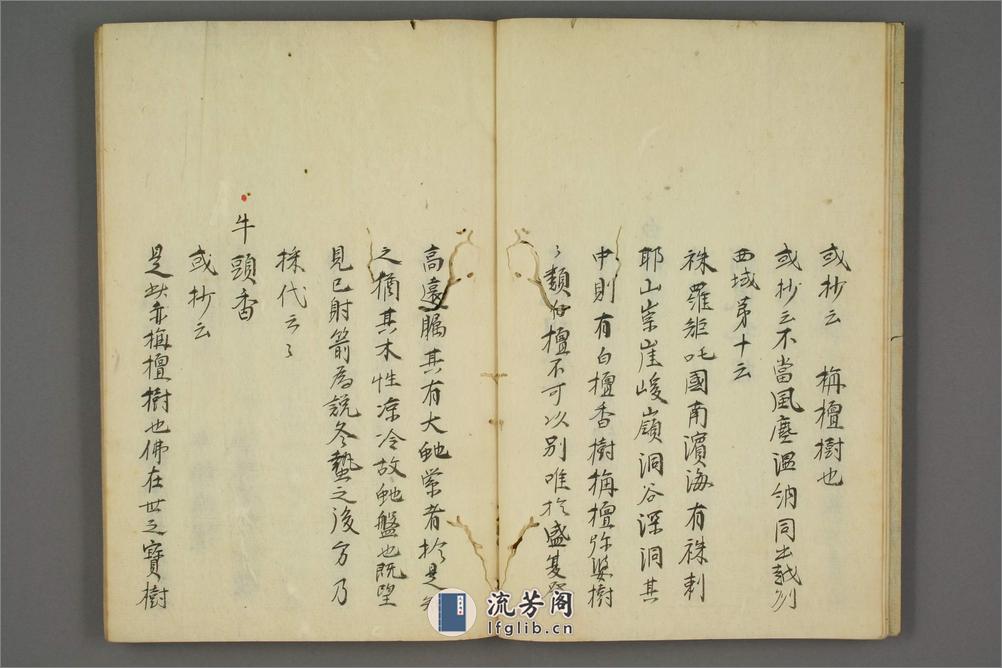 或抄云 栴檀樹也
或抄云不當風塵温納同出
西域第十云
秣羅矩吒國南濱海有秣剌
耶山崇崖峻嶺洞谷深洞其
中則有白檀香樹栴檀弥婆樹
々類白檀不可以別唯於盛夏
高遠瞩其有大虵縈者於是
之猶其木性凉冷故虵盤也既望
見已射箭為誌冬蟄之後方乃
採代云々
牛頭香
或抄云
是赤栴檀樹也佛在世之寶樹
流芳阁
lfglib.cn